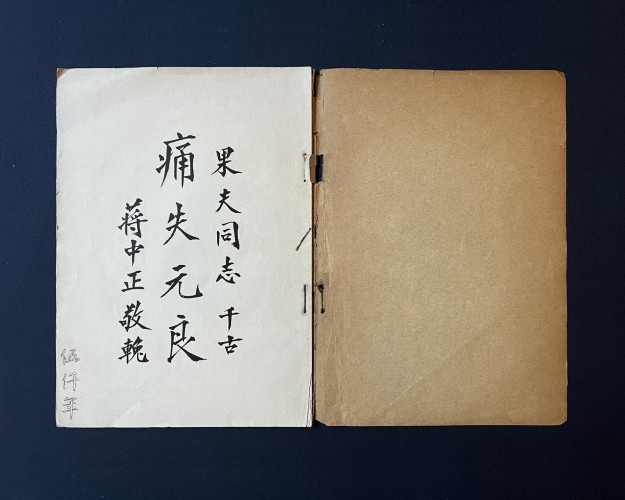 果夫同志 千古
痛失元良
蔣中正敬輓